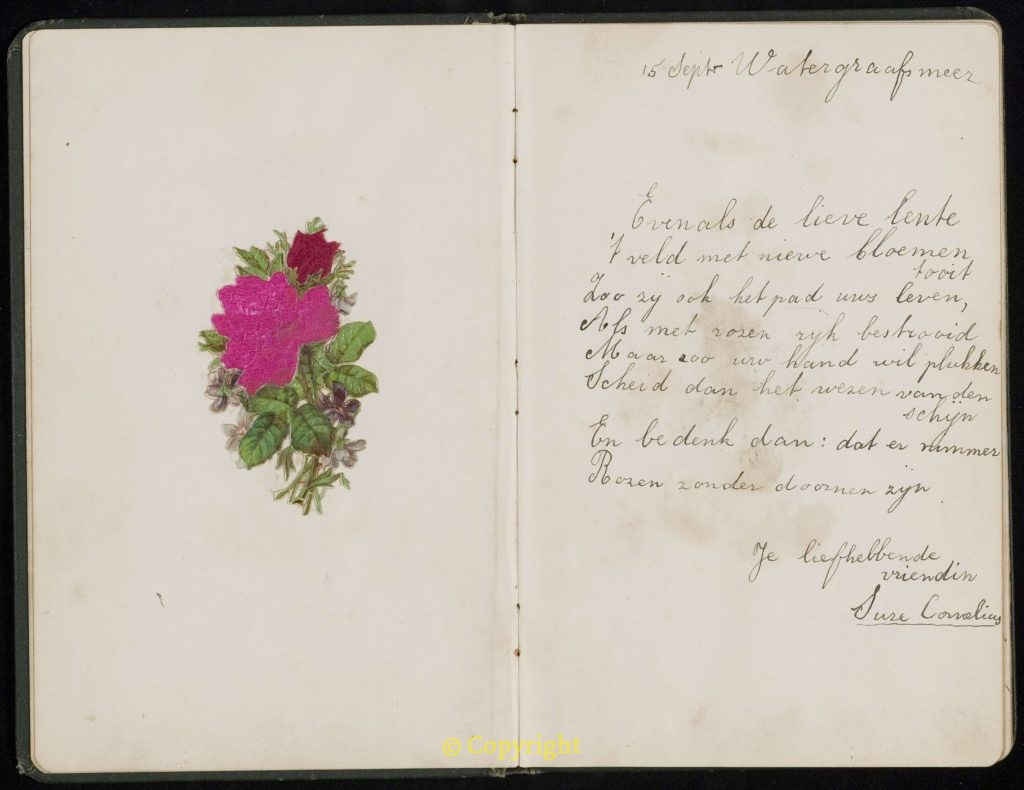 15 Septr Watergraafsmeer
Evenals de lieve lente
't veld met niewe bloemen
tooit
Zoo zij ook het pad uws leven,
Als met rozen rijk bestrooid
Maar zoo uw hand wil plukken
Scheid dan het wezen van den
schijn
En bedenk dan: dat er nimmer
Rozen zonder doornen zijn
Je liefhebbende
vriendin
Suze Cornelius
© Copyright